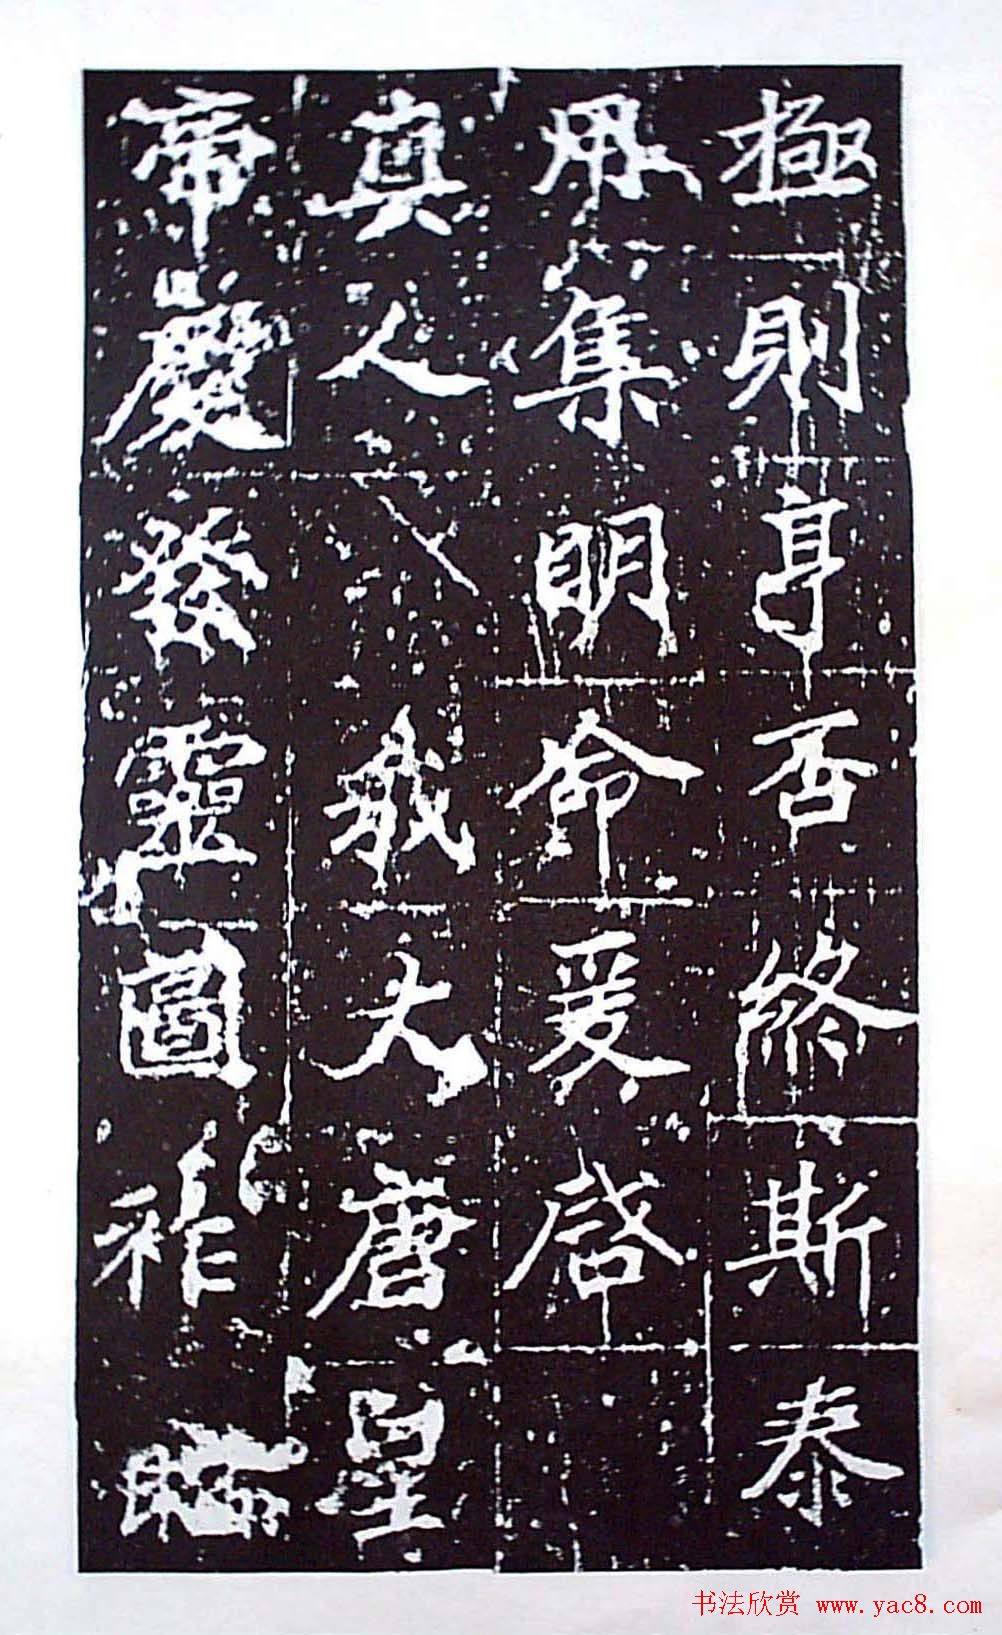 極則亨否終斯泰
用集明命爰啓
真人 我大唐皇
帝慶發靈圖祚
书法欣赏 www.yac8.com